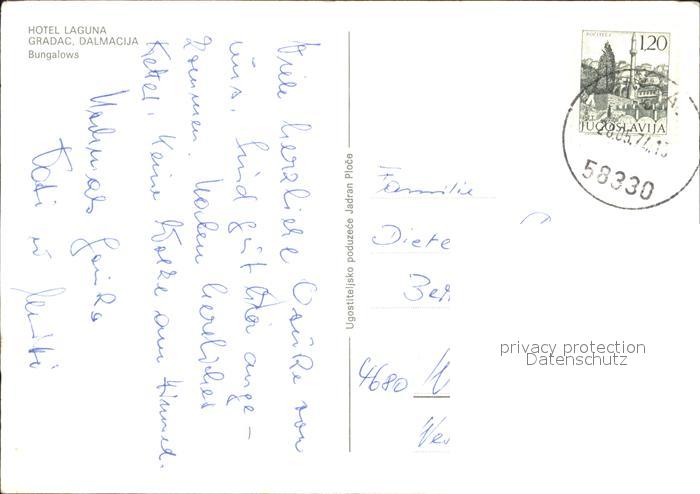 HOTEL LAGUNA
GRADAC, DALMACIJA
Bungalows
Viele herzliche Grüße von
uns. Sind gut hier ange-
kommen. Haben herrliches
Wetter, keine Wolke am Himmel.
Nochmals Grüße
Ugostiteljsko poduzeće Jadran Ploče
POČITELJ
1,20
JUGOSLAVIJA
58330
Familie
Diete
Ber
4680 W
privacy protection
Datenschutz